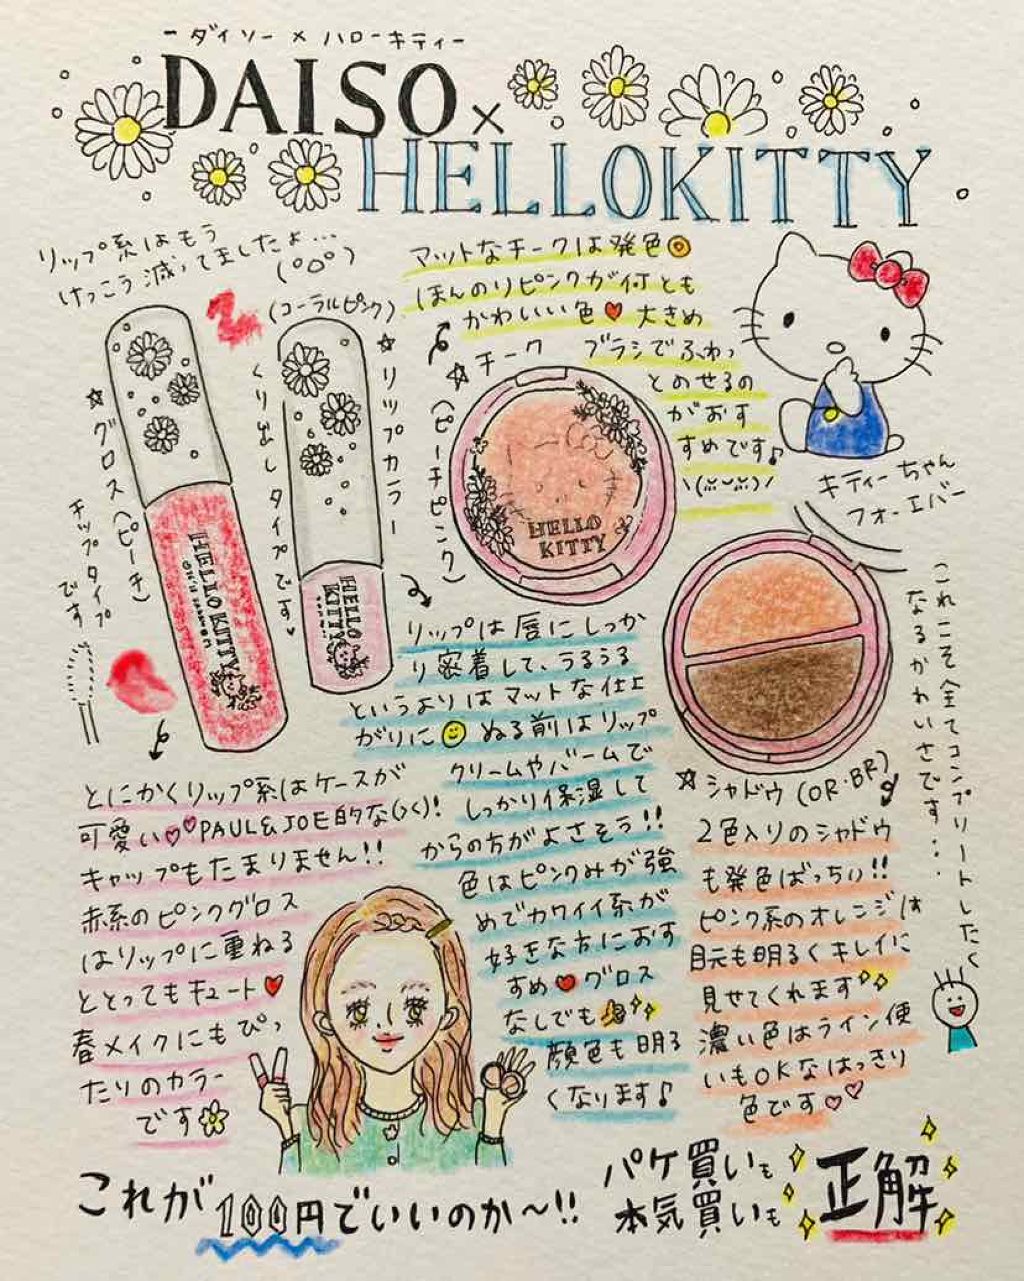 ーダイソー×ハローキティー
DAISO×
HELLOKITTY
リップ系はもう
けっこう減ってましたよ...
(コーラルピンク)
マットなチークは発色◎
ほんのりピンクが何とも
かわいい色♥大きめ
ブラシでふわっ
とのせるの
がおす
すめです♪
☆チーク
(ピーチピンク)
☆グロス(ピーチ)
チップタイプ
です
☆リップカラー
くり出しタイプです♥
HELLO
KITTY
HELLO KITTY
HELLO
KITTY
キティーちゃん
フォーエバー
これこそ全てコンプリートしたく
なるかわいさです...
リップは唇にしっか
り密着して、うるうる
というよりはマットな仕上
がりに ぬる前はリップ
クリームやバームで
しっかり保湿して
からの方がよさそう!!
色はピンクみが強
めでカワイイ系が
好きな方におす
すめ♥グロス
なしでも
顔色も明る
くなります♪
☆シャドウ(OR・BR)
2色入りのシャドウ
も発色ばっちい!!
ピンク系のオレンジは
目元も明るくキレイに
見せてくれます
濃い色はライン使
いもOKなはっきり
色です♡♡
とにかくリップ系はケースが
可愛い♡♡PAUL&JOE的な(いく)!
キャップもたまりません!!
赤系のピンクグロス
はリップに重ねる
ととってもキュート♥
春メイクにもぴっ
たりのカラー
です
これが100円でいいのか〜!!
パケ買いも
本気買いも
正解